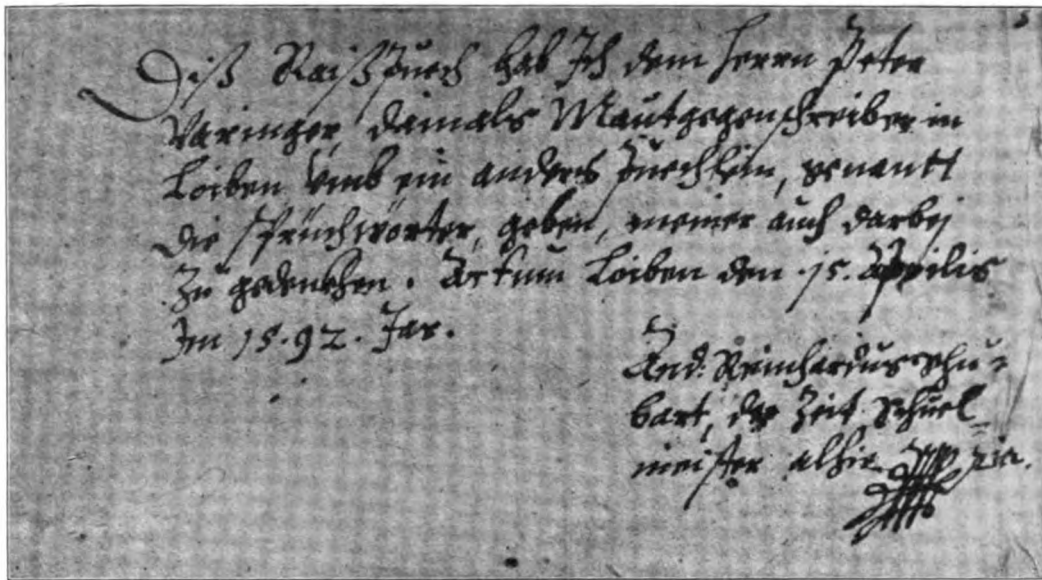 Diß Raißpuech hab Ich dem herrn Peter
Väringer, damals Mautgegenschreiber in
Loiben vmb ein anders puechlein, genantt
die Sprüchwörter, geben, meiner auch darbej
zu gedenckhen. Actum Loiben den .15. Apprilis
Im 15.92. Jar.
And: Reinhardus Schu=
bart, der Zeit Schuel=
meister alhie